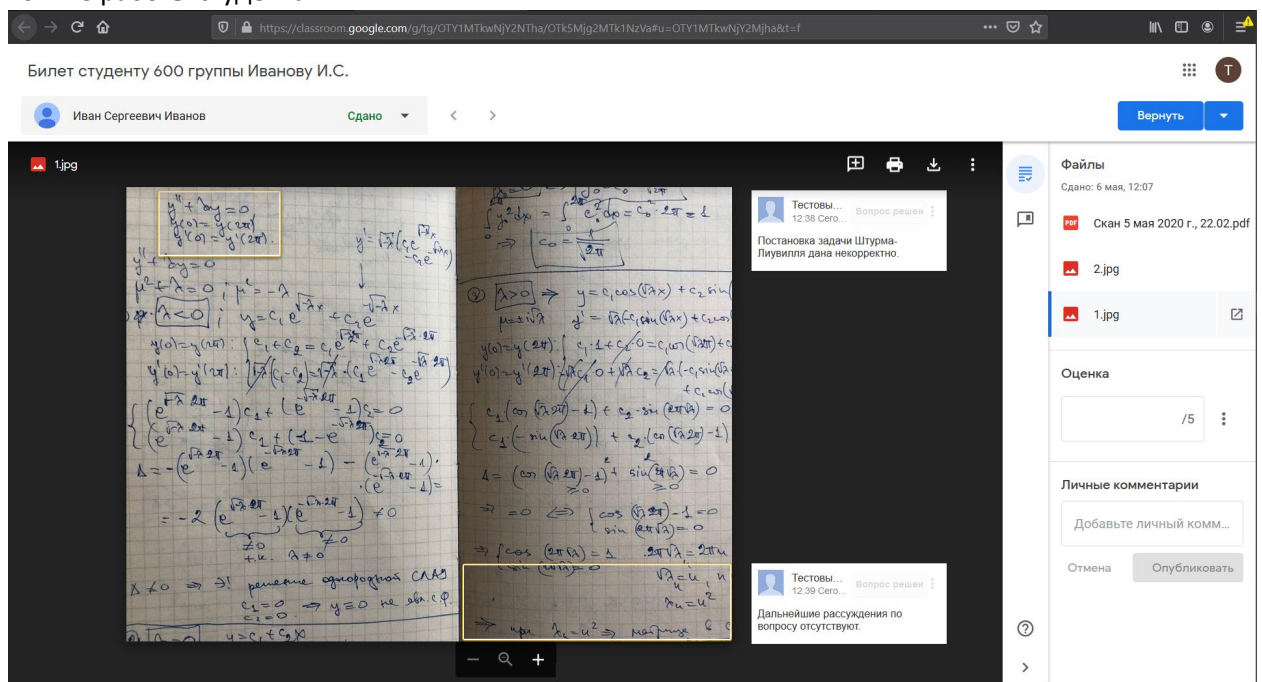 https://classroom.google.com/g/tg/OTY1MTkwNjY2NTha/OTk5Mjg2MTk1NzVa#u=OTY1MTkwNjY2Mjha&t=f
Билет студенту 600 группы Иванову И.С.
T
Иван Сергеевич Иванов
Сдано
Вернуть
1.jpg
y'' + λy = 0
y(0) = y(2π)
y'(0) = y'(2π).
y' = √-λ(c₁e^{√-λx} - c₂e^{-√-λx})
y'' + λy = 0
μ² + λ = 0 ; μ² = -λ
λ<0 ; y = c₁e^{√-λx} + c₂e^{-√-λx}
y(0)=y(2π): { c₁ + c₂ = c₁e^{√-λ2π} + c₂e^{-√-λ·2π}
y'(0)=y'(2π): √-λ(c₁-c₂) = √-λ·(c₁e^{√-λ2π} - c₂e^{-√-λ·2π})
{ (e^{√-λ2π} - 1)c₁ + (e^{-√-λ2π} - 1)c₂ = 0
(e^{√-λ2π} - 1)c₁ + (1 - e^{-√-λ2π})c₂ = 0
Δ = -(e^{√-λ2π} - 1)(e^{-√-λ2π} - 1) - (e^{√-λ2π} - 1)·
·(e^{-√-λ2π} - 1) =
= -2(e^{√-λ·2π} - 1)(e^{-√-λ·2π} - 1) ≠ 0
≠0 ≠0
т.к. λ≠0
Δ ≠ 0 ⇒ ∃! решение однородной СЛАУ
c₁ = 0 ⇒ y ≡ 0 не явл. с.ф.
c₂ = 0
λ=0 y = c₁ + c₂x
∫y₀²dx = ∫c₀²dx = c₀²·2π = 1
⇒ c₀ = 1/√2π
③ λ>0 ⇒ y = c₁cos(√λx) + c₂sin(
μ=±i√λ y' = √λ(-c₁sin(√λx) + c₂cos(
y(0)=y(2π): { c₁·1 + c₂·0 = c₁cos(√λ2π) + c
y'(0)=y'(2π): √λc₁·0 + √λc₂ = √λ(-c₁sin(√λ
+ c₂cos(
{ c₁·(cos(√λ2π) - 1) + c₂·sin(2π√λ) = 0
c₁·(-sin(√λ·2π)) + c₂(cos(√λ2π) - 1)
Δ = (cos(√λ2π) - 1)² + sin²(2π√λ) = 0
≥0 ≥0
⇒ =0 ⇔ { cos(√λ2π) - 1 = 0
sin(2π√λ) = 0
⇒ { cos(2π√λ) = 1 2π√λ = 2πn
√λ = n, n
λₙ = n²
⇒ при λₙ = n² ⇒ матрица
Тестовы...
12:38 Сего...
Вопрос решен
Постановка задачи Штурма-
Лиувилля дана некорректно.
Тестовы...
12:39 Сего...
Вопрос решен
Дальнейшие рассуждения по
вопросу отсутствуют.
Файлы
Сдано: 6 мая, 12:07
PDF
Скан 5 мая 2020 г., 22.02.pdf
2.jpg
1.jpg
Оценка
/5
Личные комментарии
Добавьте личный комм...
Отмена
Опубликовать